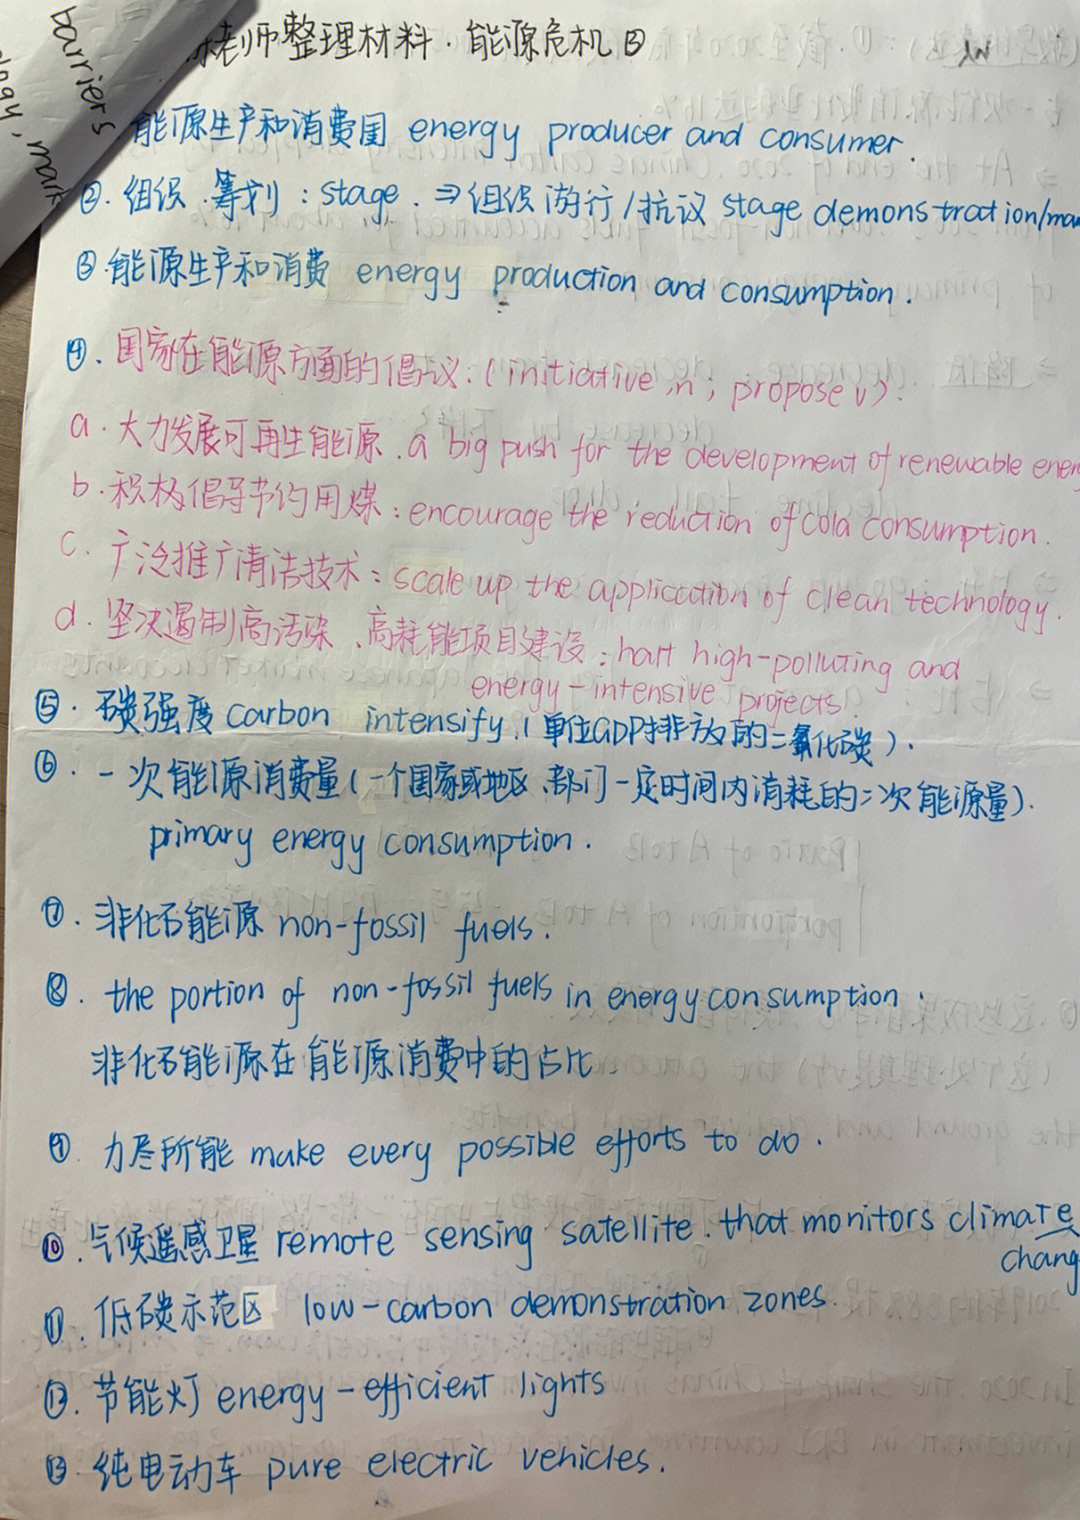 老师整理材料·能源危机③
barriers
能源生产和消费国 energy producer and consumer.
②. 组织、筹划：stage. ⇒组织游行/抗议 stage demonstration/mar
③.能源生产和消费 energy production and consumption.
④. 国家在能源方面的倡议.(initiative,n; propose v).
a. 大力发展可再生能源. a big push for the development of renewable ener
b. 积极倡导节约用煤：encourage the reduction of cola consumption.
c. 广泛推广清洁技术：scale up the application of clean technology.
d. 坚决遏制高污染、高耗能项目建设：hart high-polluting and
energy-intensive projects.
⑤. 碳强度 carbon intensify.(单位GDP排放的二氧化碳).
⑥. 一次能源消费量(一个国家或地区、部门一定时间内消耗的二次能源量).
primary energy consumption.
⑦. 非化石能源 non-fossil fuels.
⑧. the portion of non-fossil fuels in energy consumption:
非化石能源在能源消费中的占比.
⑨. 力尽所能 make every possible efforts to do.
⑩. 气候遥感卫星 remote sensing satellite. that monitors climate
chang
⑪. 低碳示范区 low-carbon demonstration zones.
⑫. 节能灯 energy-efficient lights
⑬. 纯电动车 pure electric vehicles.